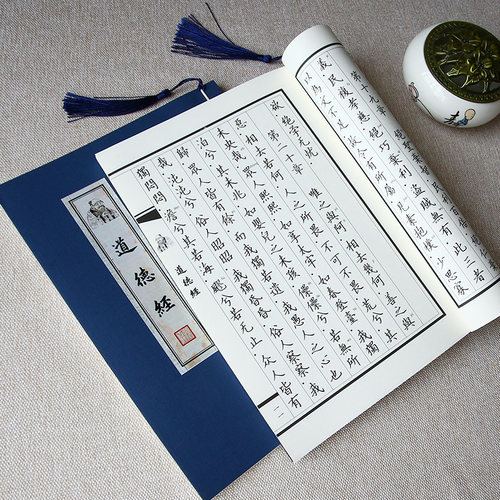 第十九章 絕聖棄智民利百倍
義民復孝慈絕巧棄利盜賊無有此三者
以為文不足故令有所屬見素抱樸少思寡
欲
第二十章
絕学无忧 唯之與阿相去幾何善之與
惡相去若何人之所畏不可不畏荒兮其
未央哉眾人熙熙如享太牢如春登臺我獨
泊兮其未兆如嬰兒之未孩儽儽兮若無所
歸眾人皆有餘而我獨若遺我愚人之心也
哉沌沌兮俗人昭昭我獨昏昏俗人察察我
獨悶悶澹兮其若海飂兮若無止眾人皆有
道德經
二
道德經